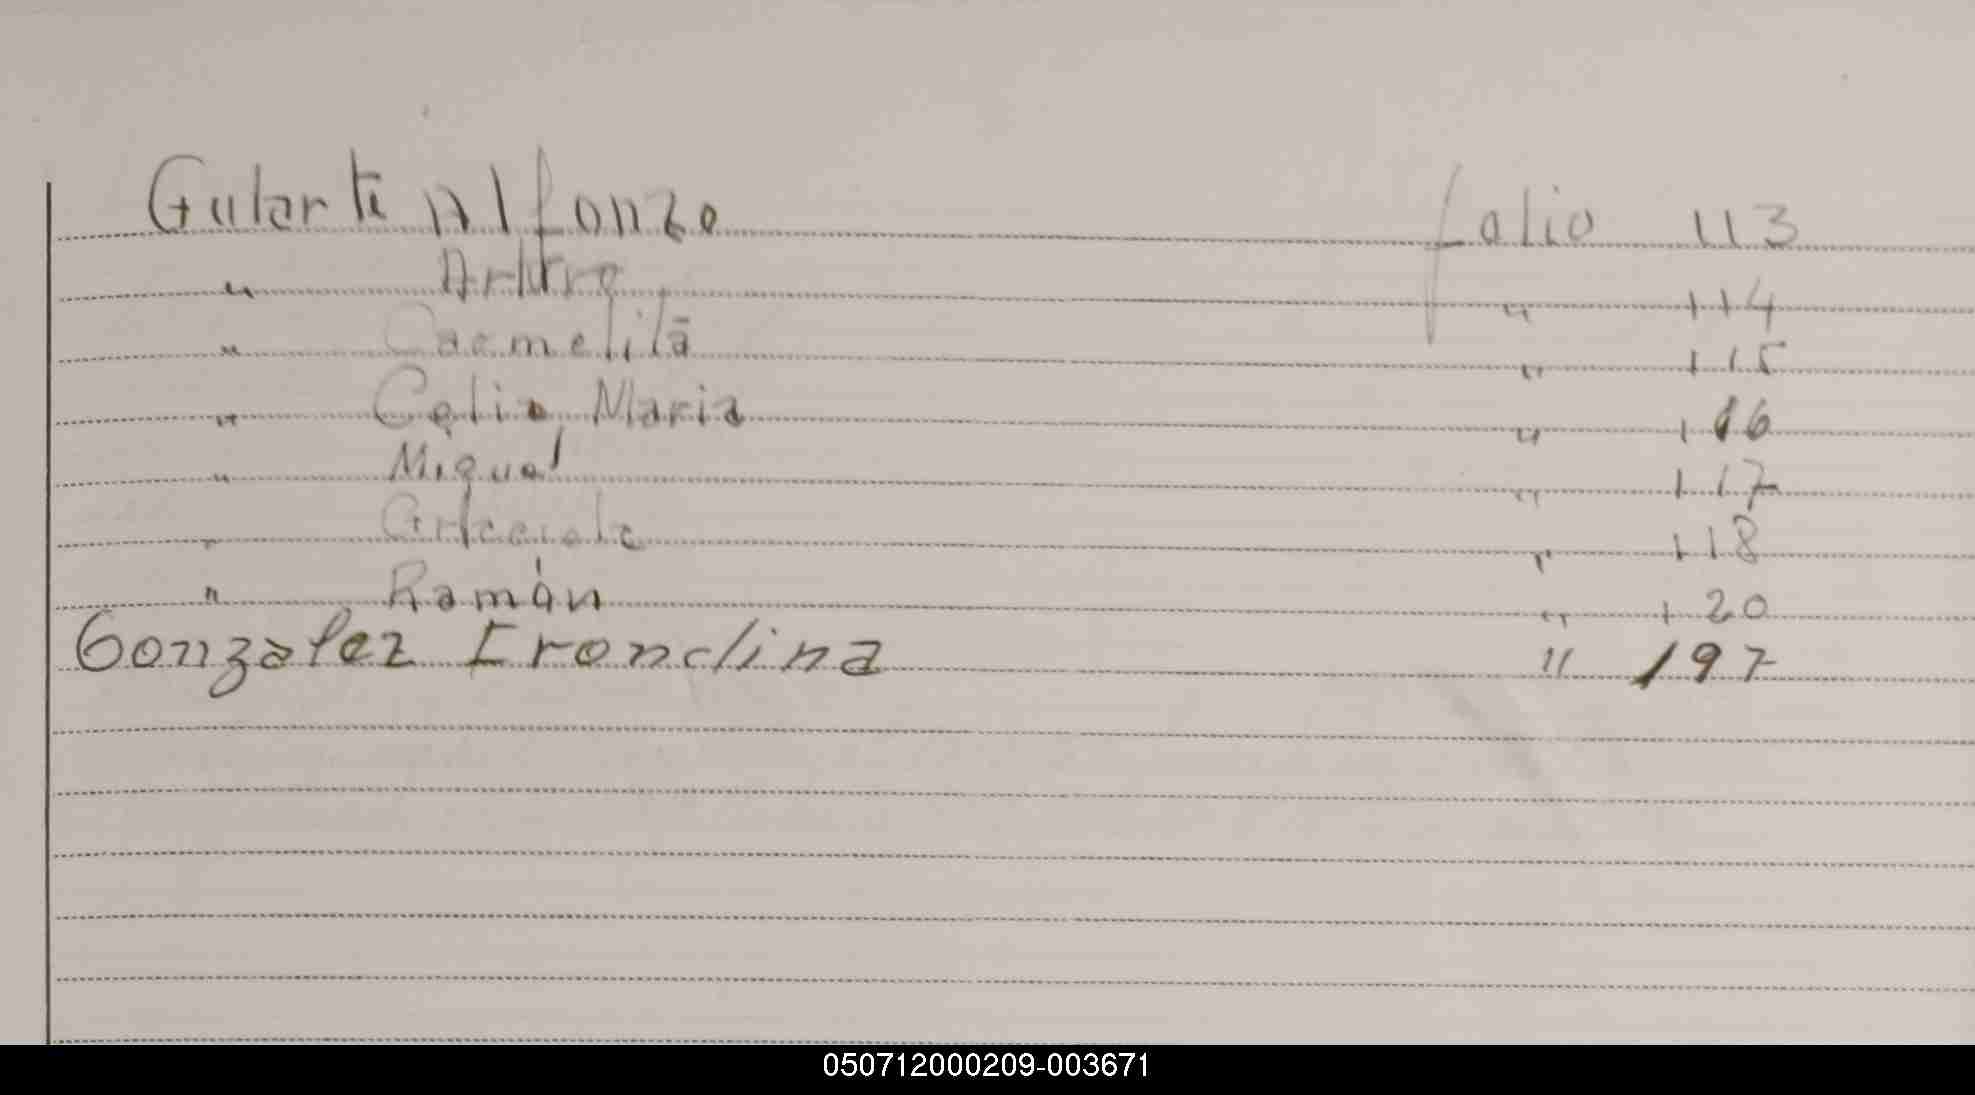 Gularte Alfonzo folio 113
" Arturo " 114
" Carmelita " 115
" Celia Maria " 116
" Miguel " 117
" Graciela " 118
" Ramón " 120
Gonzalez Erondina " 197
050712000209-003671